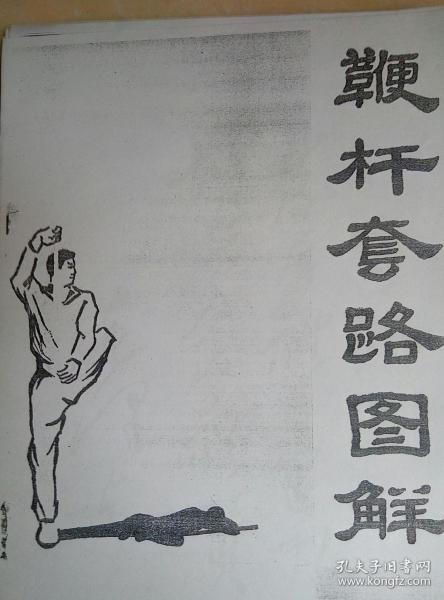 鞭杆套路图解
孔夫子旧书网
www.kongfz.com